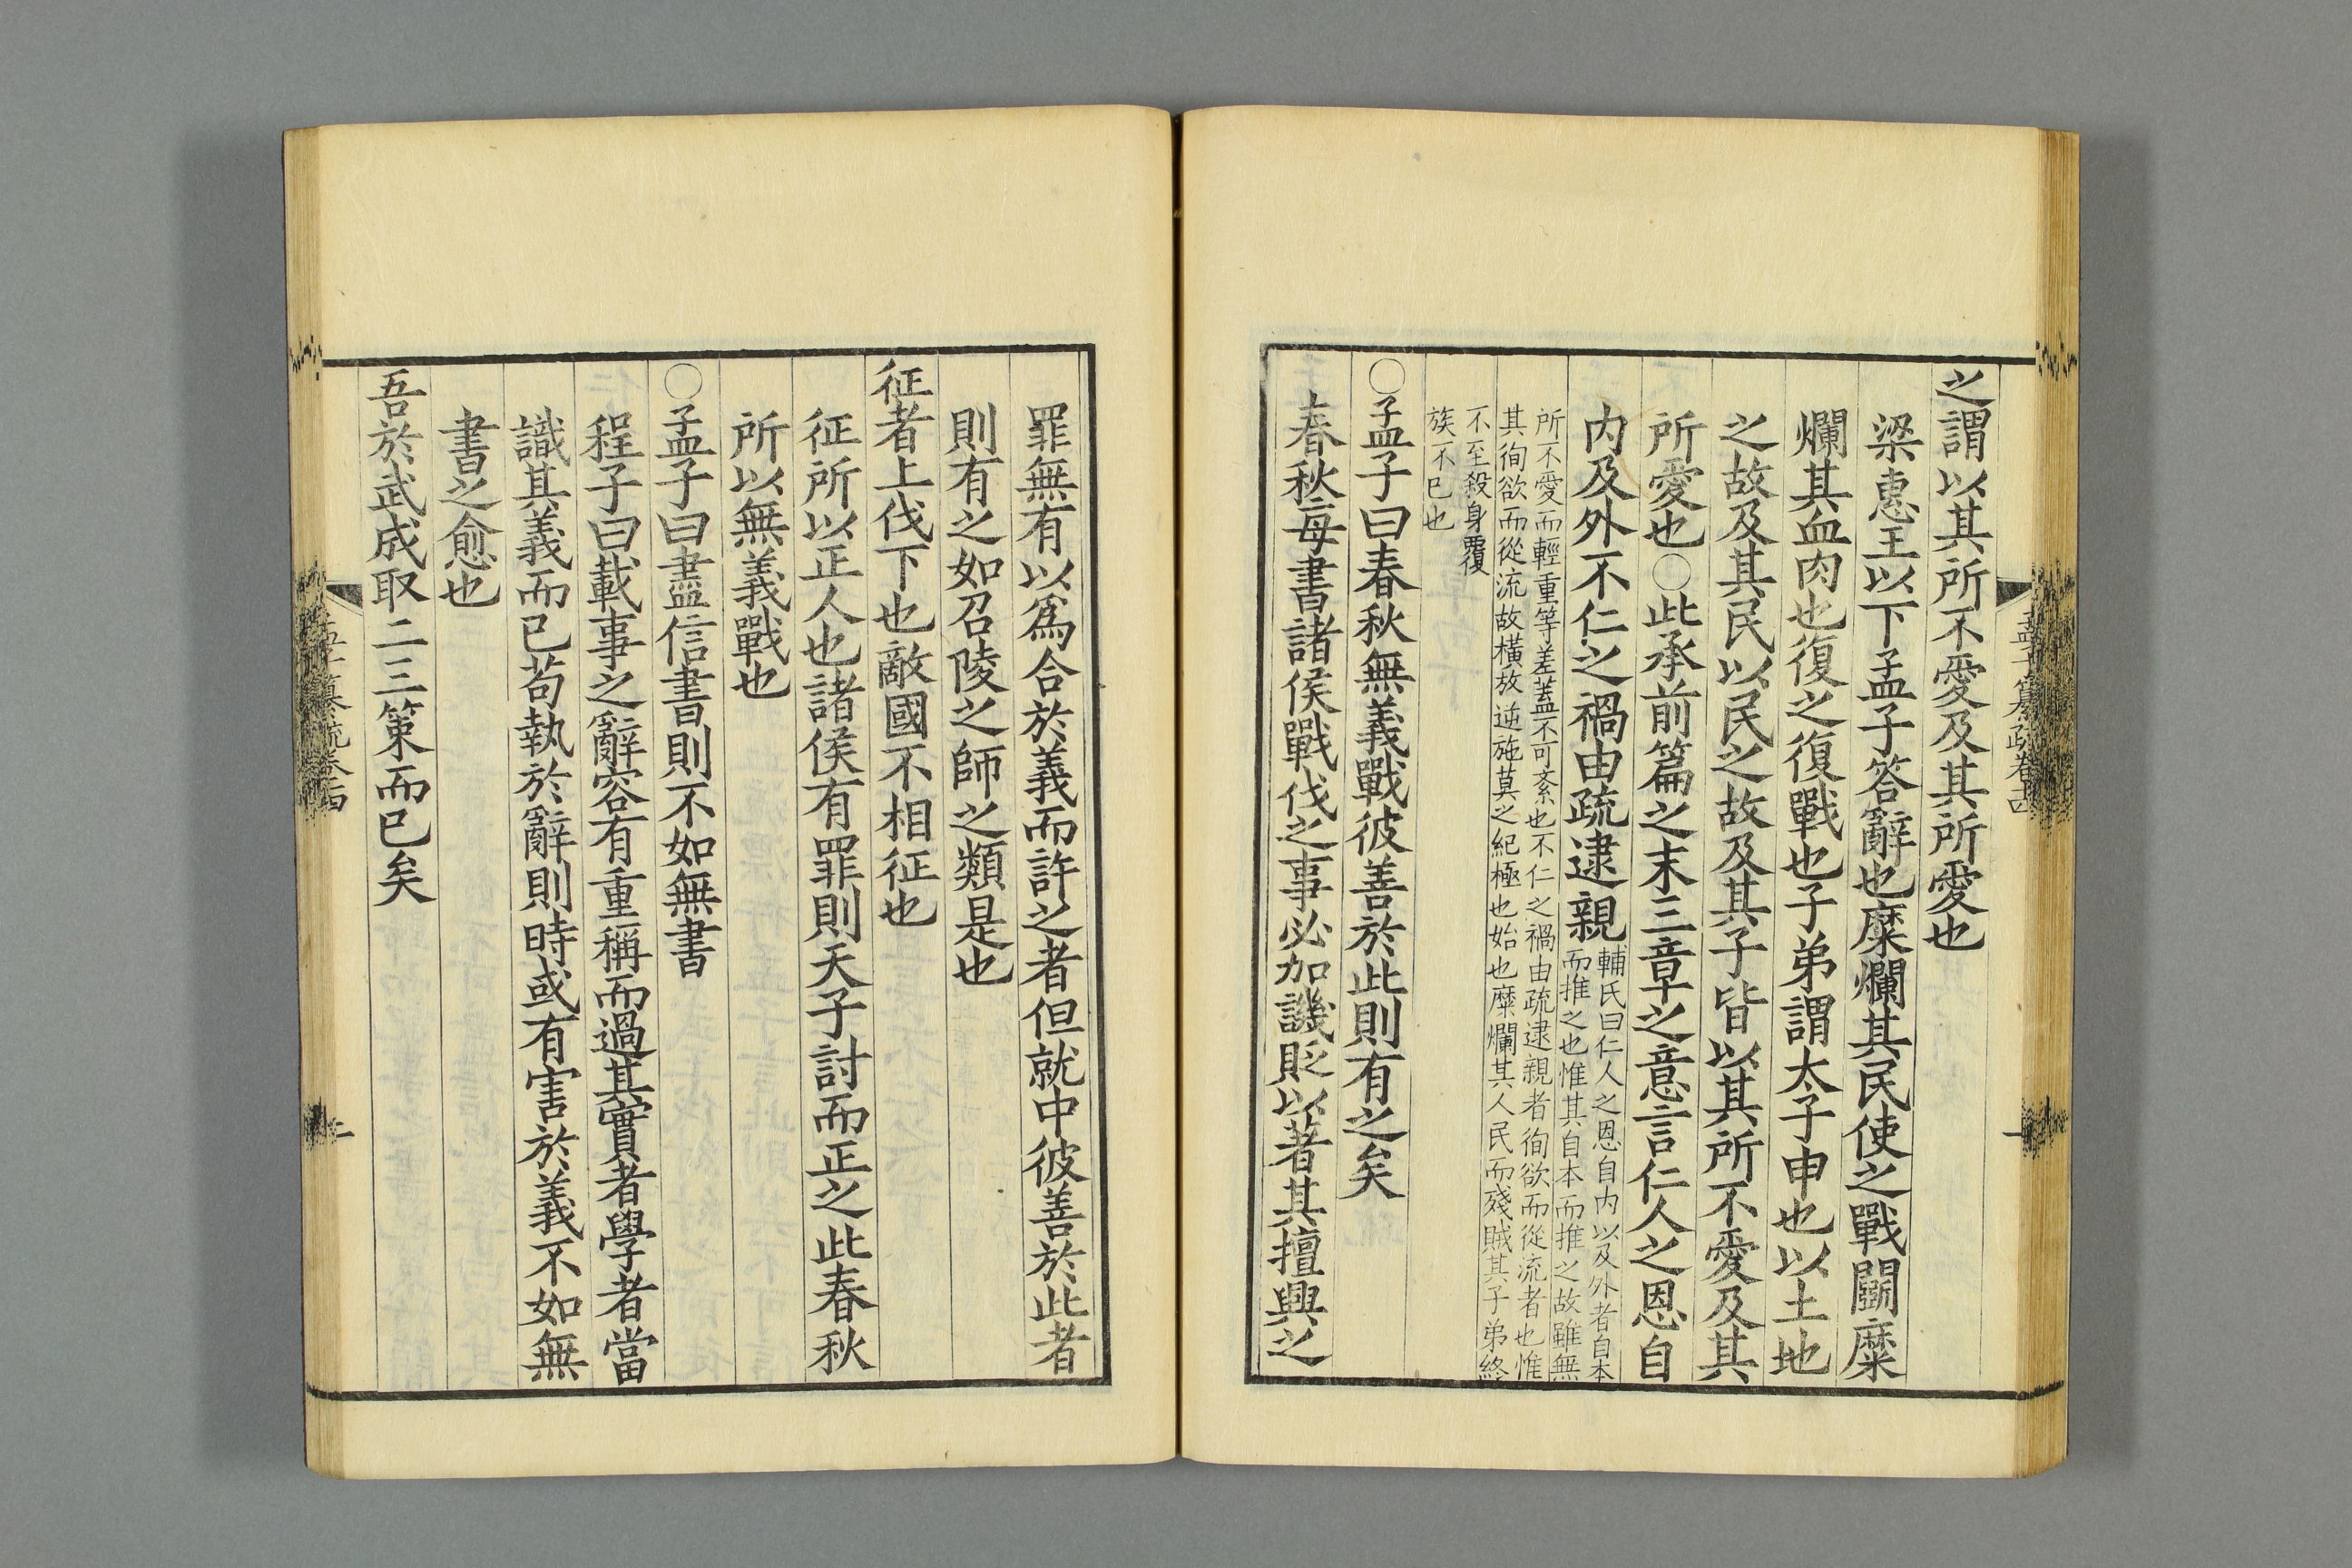 之謂以其所不愛及其所愛也
梁惠王以下孟子答辭也糜爛其民使之戰鬬糜
爛其血肉也復之復戰也子弟謂太子申也以土地
之故及其民以民之故及其子皆以其所不愛及其
所愛也○此承前篇之末三章之意言仁人之恩自
內及外不仁之禍由疏逮親
輔氏曰仁人之恩自内以及外者自本
而推之也惟其自本而推之故雖無
所不愛而輕重等差蓋不可紊也不仁之禍由疏逮親者徇欲而從流者也惟
其徇欲而從流故橫放逆施莫之紀極也始也糜爛其人民而殘賊其子弟終
不至殺身覆
族不已也
○孟子曰春秋無義戰彼善於此則有之矣
春秋每書諸侯戰伐之事必加譏貶以著其擅興之
罪無有以爲合於義而許之者但就中彼善於此者
則有之如召陵之師之類是也
征者上伐下也敵國不相征也
征所以正人也諸侯有罪則天子討而正之此春秋
所以無義戰也
○孟子曰盡信書則不如無書
程子曰載事之辭容有重稱而過其實者學者當
識其義而已苟執於辭則時或有害於義不如無
書之愈也
吾於武成取二三策而已矣